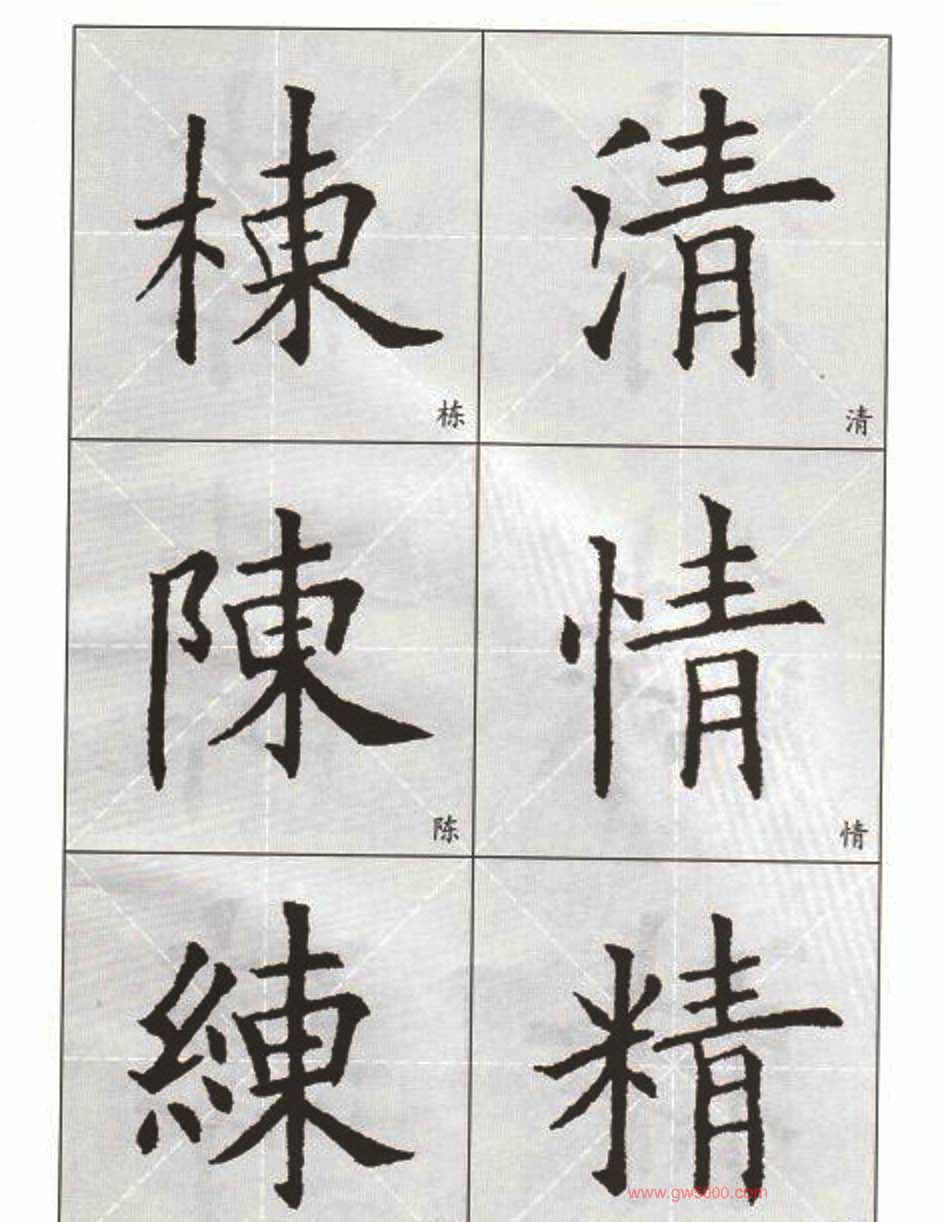 棟 清
栋 清
陳 情
陈 情
練 精
www.gw5000.com